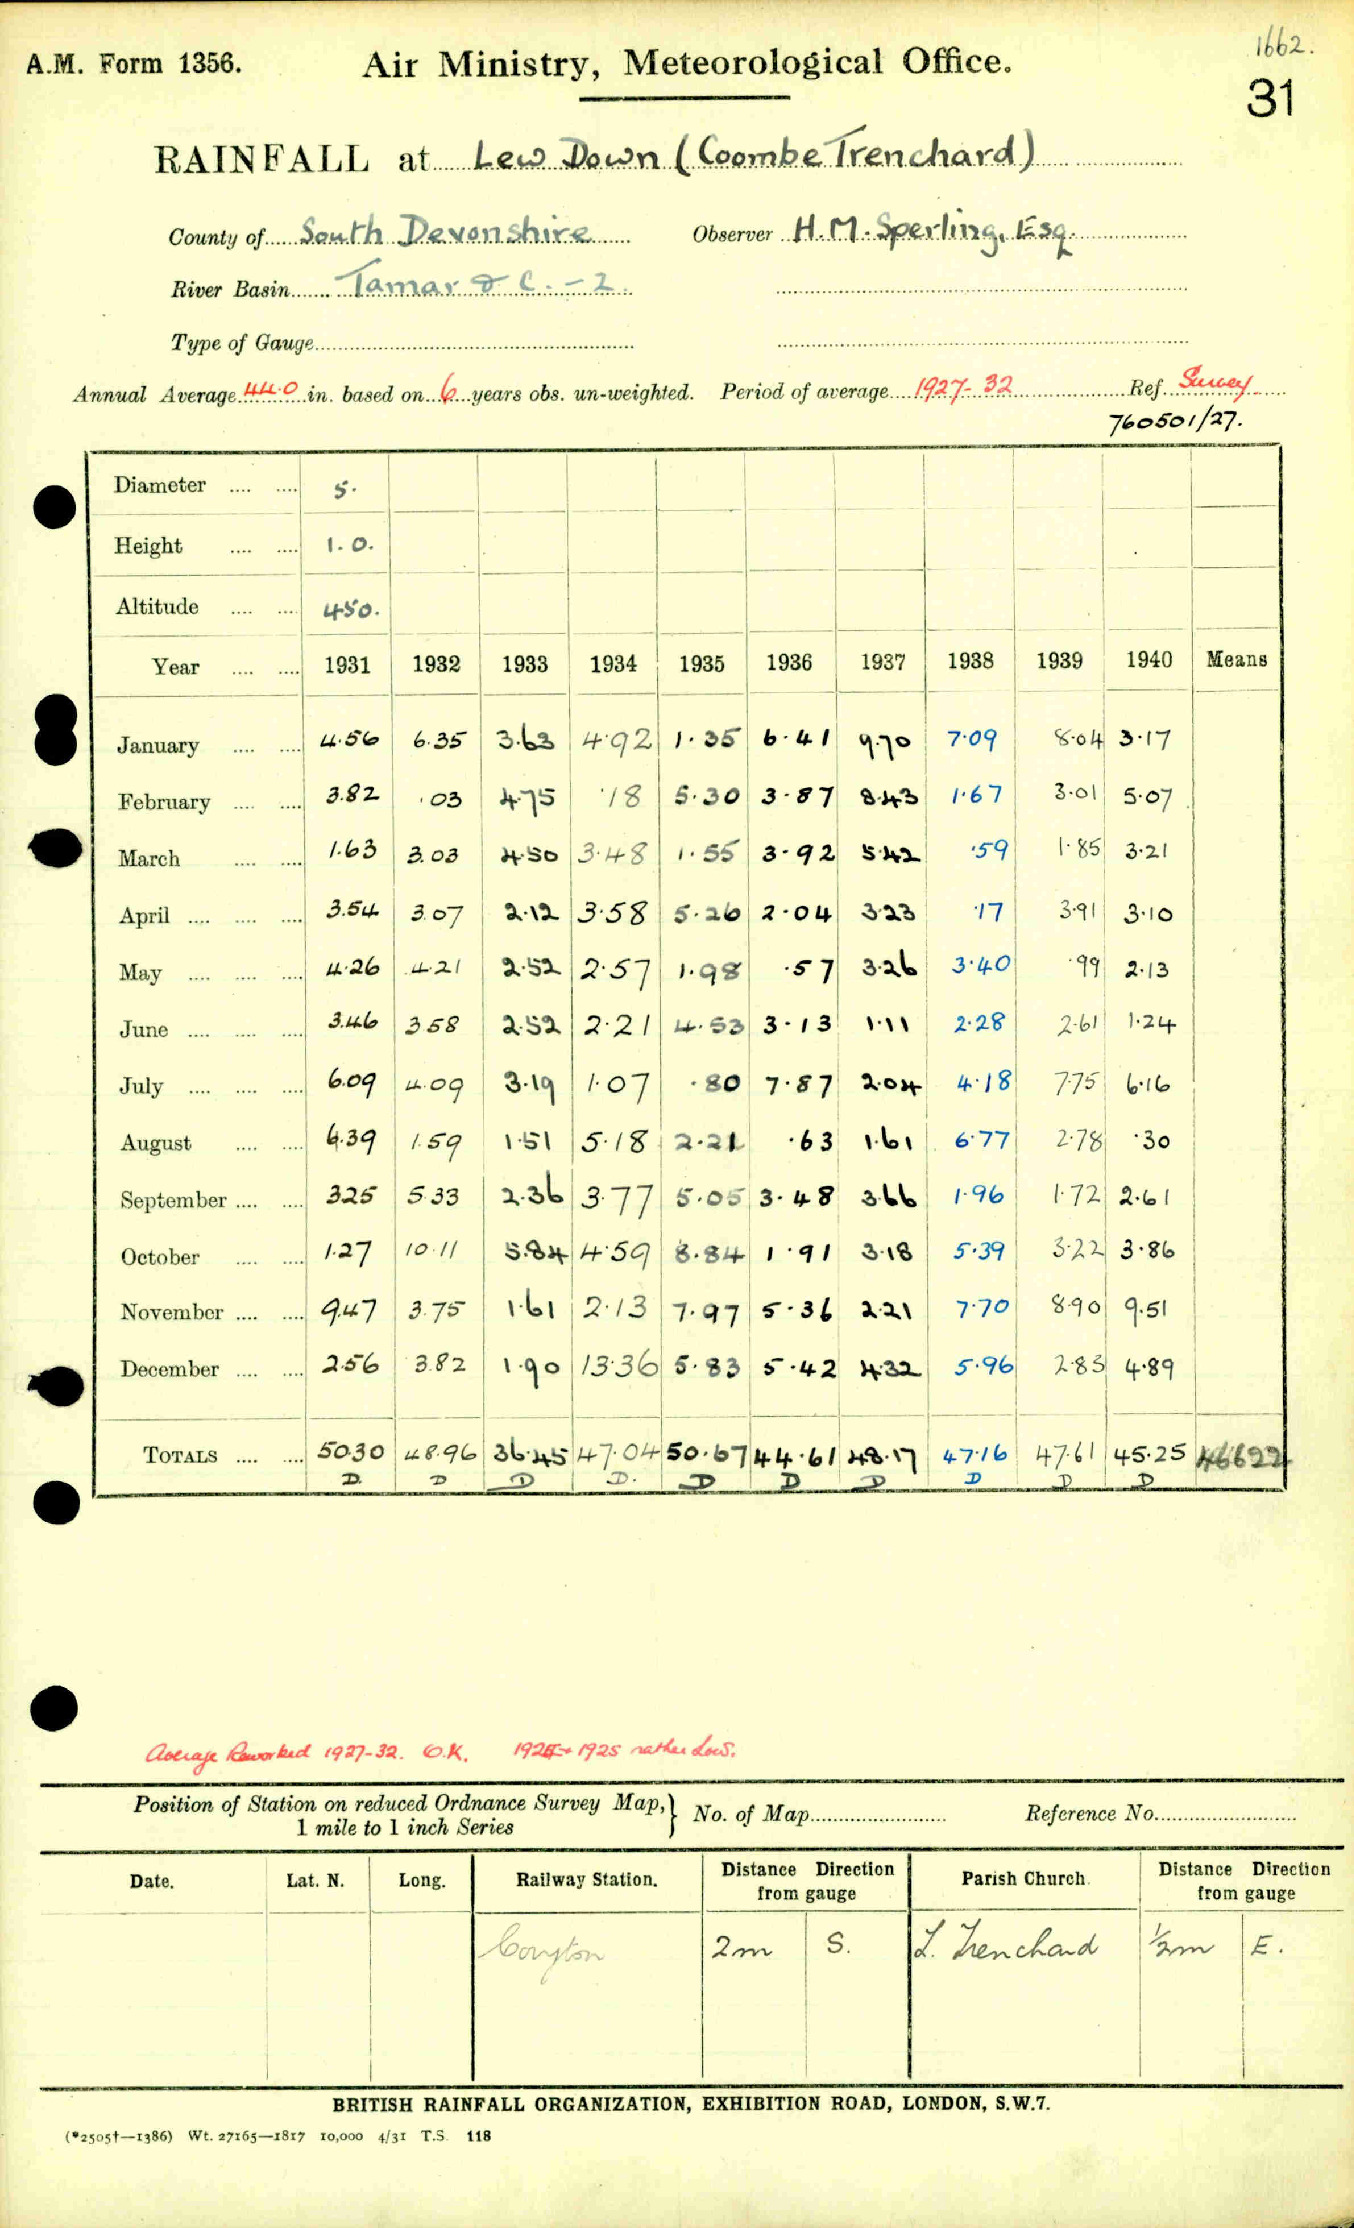 A.M. Form 1356.
Air Ministry, Meteorological Office.
1662.
31
RAINFALL at Lew Down (Coombe Trenchard)
County of South Devonshire Observer H.M. Sperling, Esq.
River Basin Tamar & C. - 2.
Type of Gauge
Annual Average 44.0 in. based on 6 years obs. un-weighted. Period of average 1927-32 Ref. Survey
760501/27.
Diameter 5.
Height 1.0.
Altitude 450.
Year 1931 1932 1933 1934 1935 1936 1937 1938 1939 1940 Means
January 4.56 6.35 3.63 4.92 1.35 6.41 9.70 7.09 8.04 3.17
February 3.82 .03 4.75 .18 5.30 3.87 8.43 1.67 3.01 5.07
March 1.63 3.03 4.50 3.48 1.55 3.92 5.42 .59 1.85 3.21
April 3.54 3.07 2.12 3.58 5.26 2.04 3.23 .17 3.91 3.10
May 4.26 4.21 2.52 2.57 1.98 .57 3.26 3.40 .99 2.13
June 3.46 3.58 2.52 2.21 4.53 3.13 1.11 2.28 2.61 1.24
July 6.09 4.09 3.19 1.07 .80 7.87 2.04 4.18 7.75 6.16
August 6.39 1.59 1.51 5.18 2.21 .63 1.61 6.77 2.78 .30
September 3.25 5.33 2.36 3.77 5.05 3.48 3.66 1.96 1.72 2.61
October 1.27 10.11 5.84 4.59 8.84 1.91 3.18 5.39 3.22 3.86
November 9.47 3.75 1.61 2.13 7.97 5.36 2.21 7.70 8.90 9.51
December 2.56 3.82 1.90 13.36 5.83 5.42 4.32 5.96 2.83 4.89
TOTALS 50.30 48.96 36.45 47.04 50.67 44.61 48.17 47.16 47.61 45.25 46622
D D D D. D D D D D D
Average Reworked 1927-32. O.K. 1924 + 1925 rather Low.
Position of Station on reduced Ordnance Survey Map, 1 mile to 1 inch Series } No. of Map Reference No.
Date. Lat. N. Long. Railway Station. Distance Direction from gauge Parish Church. Distance Direction from gauge
Coryton 2m S. L. Trenchard ½m E.
BRITISH RAINFALL ORGANIZATION, EXHIBITION ROAD, LONDON, S.W.7.
(*2505†—1386) Wt. 27165—1817 10,000 4/31 T.S. 118